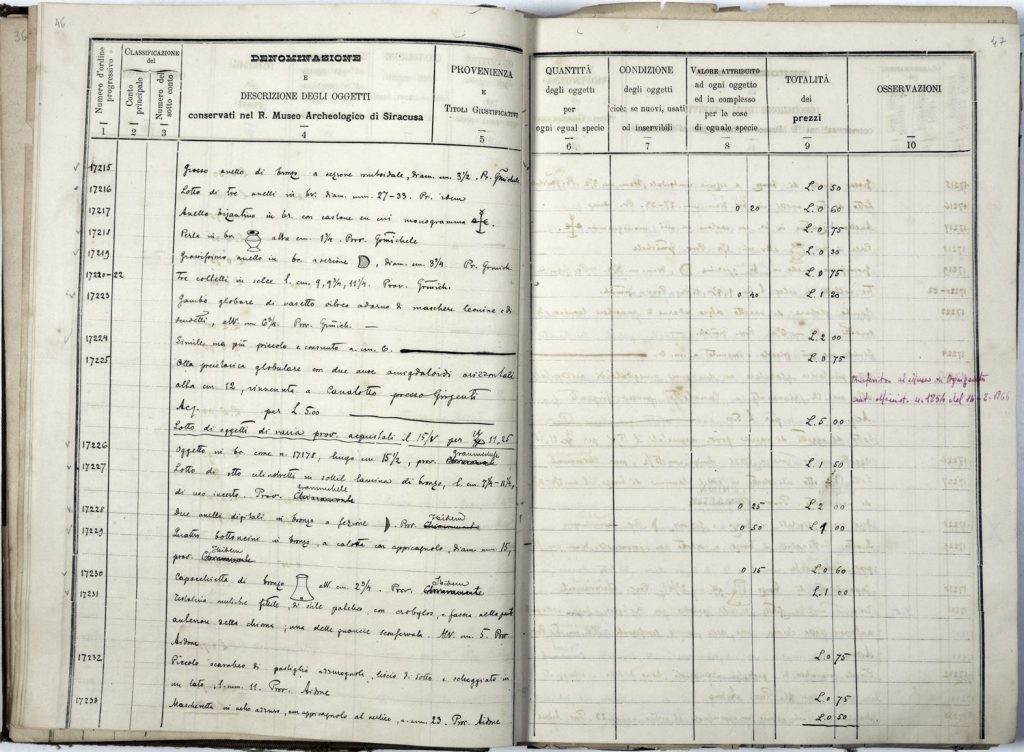 36
46
47
Numero d'ordine progressivo
1
CLASSIFICAZIONE del
Conto principale
2
Numero del sotto conto
3
DENOMINAZIONE
E
DESCRIZIONE DEGLI OGGETTI
conservati nel R. Museo Archeologico di Siracusa
4
PROVENIENZA
E
TITOLI GIUSTIFICATIVI
5
QUANTITÀ
degli oggetti
per
ogni egual specie
6
CONDIZIONE
degli oggetti
cioè: se nuovi, usati
od inservibili
7
VALORE ATTRIBUITO
ad ogni oggetto
ed in complesso
per le cose
di eguale specie
8
TOTALITÀ
dei
prezzi
9
OSSERVAZIONI
10
17215 Grosso anello di bronzo a sezione romboidale, diam. cm. 3 1/2. Pr. Grmichele L. 0 50
17216 Lotto di tre anelli in br. diam. mm. 27-33. Pr. idem 0 20 L. 0 60
17217 Anello bizantino in br. con castone en cui monogramma L. 0 75
17218 Perla in br. alta cm. 1 3/4. Prov. Grmichele L. 0 30
17219 Grossissimo anello in br. a sezione , diam. cm. 3 3/4. Pr. Grmich. L. 0 75
17220-22 Tre coltelli in selce l. cm. 9, 9 3/4, 11 1/4. Prov. Grmich. 0 40 L. 1 20
17223 Gambo globare di vasetto vitreo adorno di maschere leonine e di
alt. cm. 6 3/4. Prov. Grmich. — L. 2 00
17224 Simile ma più piccolo e consunto a. cm. 6. L. 0 75
17225 Olla preistorica globulare con due anse amigdaloidi orizzontali
alta cm. 12, rinvenuta a Canatotto presso Girgenti
Acq. per L. 5.00 L. 5 00
Trasferita al Museo di Agrigento
aut. Minist. n. 1854 del 14-2-1966
Lotto di oggetti di varia prov. acquistati il 15/V per 11.25
17226 Oggetto in br. come n. 17178, lungo cm. 15 1/2, prov. Chiaramonte Grammichele L. 1 50
17227 Lotto di otto cilindretti in sottil lamina di bronzo, l. cm. 7 3/4 - 11 3/4,
di uso incerto. Prov. Chiaramonte Grammichele 0 25 L. 2 00
17228 Due anelli digitali in bronzo a sezione . Prov. Chiaramonte Ibidem 0 50 L. 1 00
17229 Quattro bottoncini in bronzo, a calotta con appiccagnolo, diam. mm. 15,
prov. Chiaramonte Ibidem 0 15 L. 0 60
17230 Capocchietta di bronzo alt. cm. 2 3/4. Prov. Chiaramonte Ibidem L. 1 00
17231 Testolina muliebre fittile, di stile con crobylos, e fascia nella parte
anteriore della chioma; una delle guancie sconservata. Alt. cm. 5. Prov.
Aidone L. 0 75
17232 Piccolo scarabeo di pastiglia azzurrognola, liscio di sotto e scheggiato in
un lato, l. mm. 11. Prov. Aidone L. 0 75
17233 Mascheretta in vetro azzurro, con appiccagnolo al vertice, a. mm. 23. Prov. Aidone L. 0 50